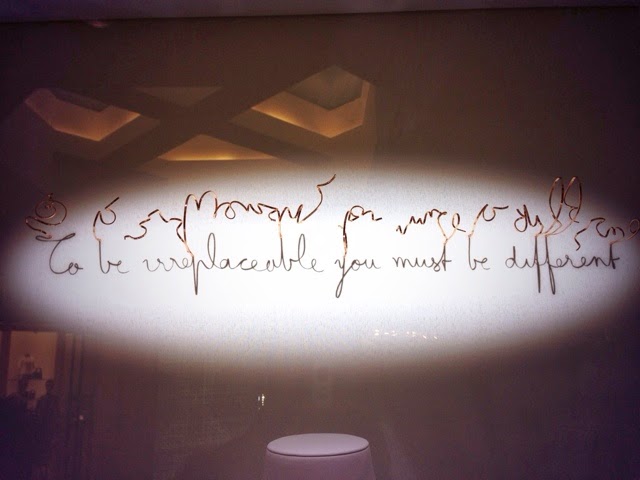 To be irreplaceable you must be different